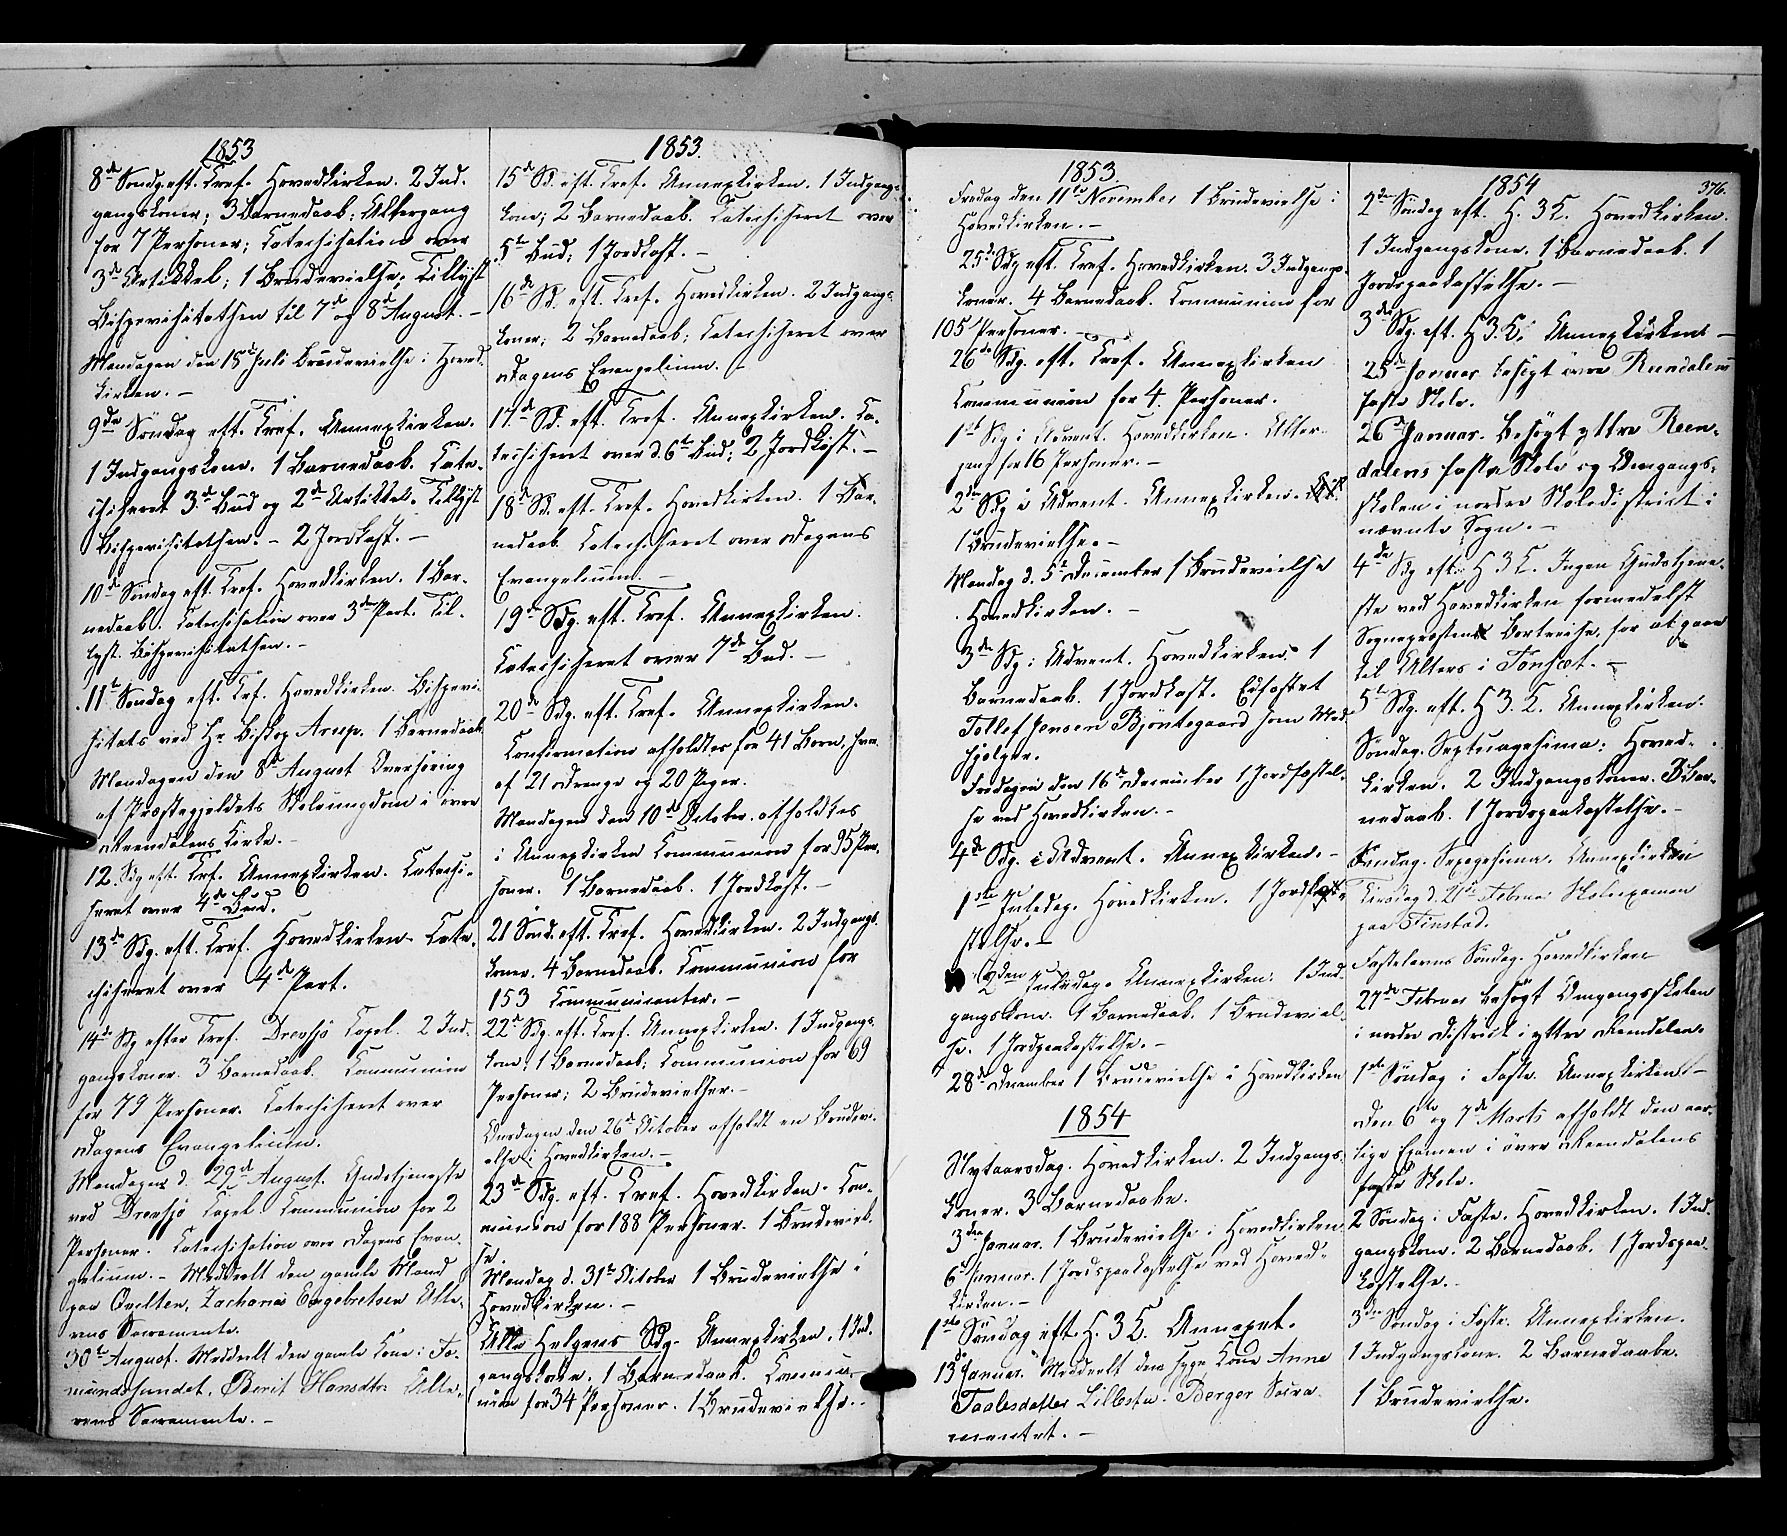 1853
8de Søndg. eft. Tref. Hovedkirken. 2 Ind-
gangskoner; 3 Barnedaab; Altergang
for 7 Personer; Catechisation over
3de Artikkel; 1 Brudevielse; Tillyst
Bispevisitathsen til 7de og 8de August. –
Mandagen den 18de Juli Brudevielse i Hoved-
kirken. –
9de Søndag eft. Tref. Annexkirken.
1 Indgangskone. 1 Barnedaab. Cate-
chiseret 3de Bud og 2de Artikkel. Tillyst
Bispevisitathsen. – 2 Jordkast. –
10de Søndag eft. Tref. Hovedkirken. 1 Bar-
nedaab. Catechisation over 3de Part. Til-
lyst Bispevisitathsen. –
11te Søndag eft. Tref. Hovedkirken. Bispevi-
sitats ved Hr. Biskop Arup. 1 Barnedaab
Mandagen den 8de August Overhøring
af Præstegjeldets Skoleungdom i øvre
Reendalens Kirke. –
12. Sdg. eft. Tref. Annexkirken. Catechi-
seret over 4de Bud.
13de Sdg. eft. Tref. Hovedkirken. Cate-
chiseret over 4de Part.
14de Sdg. efter Tref. Drevsjø Capel. 2 Ind-
gangskoner. 3 Barnedaab. Communion
for 79 Personer. Catechiseret over
Dagens Evangelium.
Mandagen d. 29de August. Gudstjeneste
ved Drevsjø Capel. Communion for 2
Personer. Catechisation over Dagens Evan-
gelium. – Meddeelt den gamle Mand
paa Qvilten, Zacharias Engebretsen Alte-
rens Sacramente.
30te August. Meddeelt den gamle Kone i Fe-
mundsundet, Berit Hansdtr. Alte-
rens Sacramente. –
1853.
15de Sd. eft. Tref. Annexkirken. 1 Indgangs-
kone; 2 Barnedaab. Catechiseret over
5te Bud; 1 Jordkast. –
16de Sd. eft. Tref. Hovedkirken. 2 Indgangs-
koner; 2 Barnedaab; Catechiseret over
Dagens Evangelium. –
17de Sd. eft. Tref. Annexkirken. Ca-
techiseret over d. 6te Bud; 2 Jordkast. –
18de Sd. eft. Tref. Hovedkirken. 1 Bar-
nedaab. Catechiseret over Dagens
Evangelium. –
19de Sdg. eft. Tref. Annexkirken.
Catechiseret over 7de Bud. –
20de Sdg. eft. Tref. Annexkirken.
Confirmation afholdtes for 41 Børn, hvor-
af 21 Drenge og 20 Piger.
Mandagen den 10de October afholdtes
i Annexkirken Communion for 95 Per-
soner. 1 Barnedaab. 1 Jordkast. –
21 Sønd. eft. Tref. Hovedkirken. 2 Indgangs-
koner. 4 Barnedaab. Communion for
153 Communicanter. –
22de Sdg. eft. Tref. Annexkirken. 1 Indgangs-
kone; 1 Barnedaab; Communion for 69
Personer; 2 Brudevielser. –
Onsdagen den 26de October afholdt en Brudevi-
else i Hovedkirken. –
23de Sdg. eft. Tref. Hovedkirken. Com-
munion for 188 Personer. 1 Brudeviel-
se.
Mandag d. 31te October 1 Brudevielse i
Hovedkirken. –
Alle Helgens Sdg. Annexkirken. 1 Ind-
gangskone. 1 Barnedaab. Commu-
nion for 34 Personer. 1 Brudevielse. –
1853.
Fredag den 11te November 1 Brudevielse i
Hovedkirken. –
25de Sdg. eft. Tref. Hovedkirken. 3 Indgangs-
koner. 4 Barnedaab. Communion for
105 Personer. –
26de Sdg. eft. Tref. Annexkirken
Communion for 4 Personer.
1ste Sdg. i Advent. Hovedkirken. Alter-
gang for 16 Personer. –
2den Sdg. i Advent. Annexkirken.
1 Brudevielse. –
Mandag d. 5te December 1 Brudevielse
Hovedkirken. –
3die Sdg. i Advent. Hovedkirken. 1
Barnedaab. 1 Jordkast. Edfæstet
Tollef Jensen Bjøntegaard som Med-
hjælper.
Fredagen den 16de December 1 Jordfæstel-
se ved Hovedkirken. –
4de Sdg. i Advent. Annexkirken. –
1ste Juledag. Hovedkirken. 1 Jordfæ-
stelse. –
2den Juledag. Annexkirken. 1 Ind-
gangskone. 1 Barnedaab. 1 Brudeviel-
se. 1 Jordpaakastelse. –
28de December 1 Brudevielse i Hovedkirken
1854
Nytaarsdag. Hovedkirken. 2 Indgangs-
koner. 3 Barnedaabe.
3die Januar. 1 Brudevielse i Hovedkirken.
6te Januar. 1 Jordspaakastelse ved Hoved-
kirken. –
1ste Søndag eft. H. 3 K. Annexet.
13de Januar. Meddeelt den syge Kone Anne
Taalesdatter Lillestu-Berger Sacra-
mentet. –
1854
376.
2den Søndag eft. H. 3 K. Hovedkirken.
1 Indgangskone. 1 Barnedaab. 1
Jordspaakastelse. –
3die Sdg. eft. H. 3 K. Annexkirken –
25de Januar besøgt øvre Rendalens
faste Skole.
26de Januar. Besøgt yttre Reen-
dalens faste Skole og Omgangs-
skolen i nordre Skoledistrict i
nævnte Sogn. –
4de Sdg. eft. H 3 K. Ingen Gudstjene-
ste ved Hovedkirken formedelst
Sognepræstens Bortreise, for at gaae
til Alters i Tønset. –
5te Sdg. eft. H 3. K. Annexkirken.
Søndag Septuagesima: Hoved-
kirken. 2 Indgangskoner. 3 Bar-
nedaab. 1 Jordspaakastelse. –
Søndag Sexagesima. Annexkirken
Tirsdag d. 21de Februar Skoleexamen
paa Finstad.
Fastelavns Søndag. Hovedkirken
27de Februar besøgt Omgangsskolen
i nordre District i yttre Rendalen.
1ste Søndag i Faste. Annexkirken –
Den 6te og 7de Marts afholdt den aar-
lige Examen i øvre Reendalens
faste Skole.
2 Søndag i Faste. Hovedkirken. 1 Ind-
gangskone. 2 Barnedaab. 1 Jordspaa-
kastelse.
3die Søndag i Faste. Annexkirken.
1 Indgangskone. 2 Barnedaabe.
1 Brudevielse.